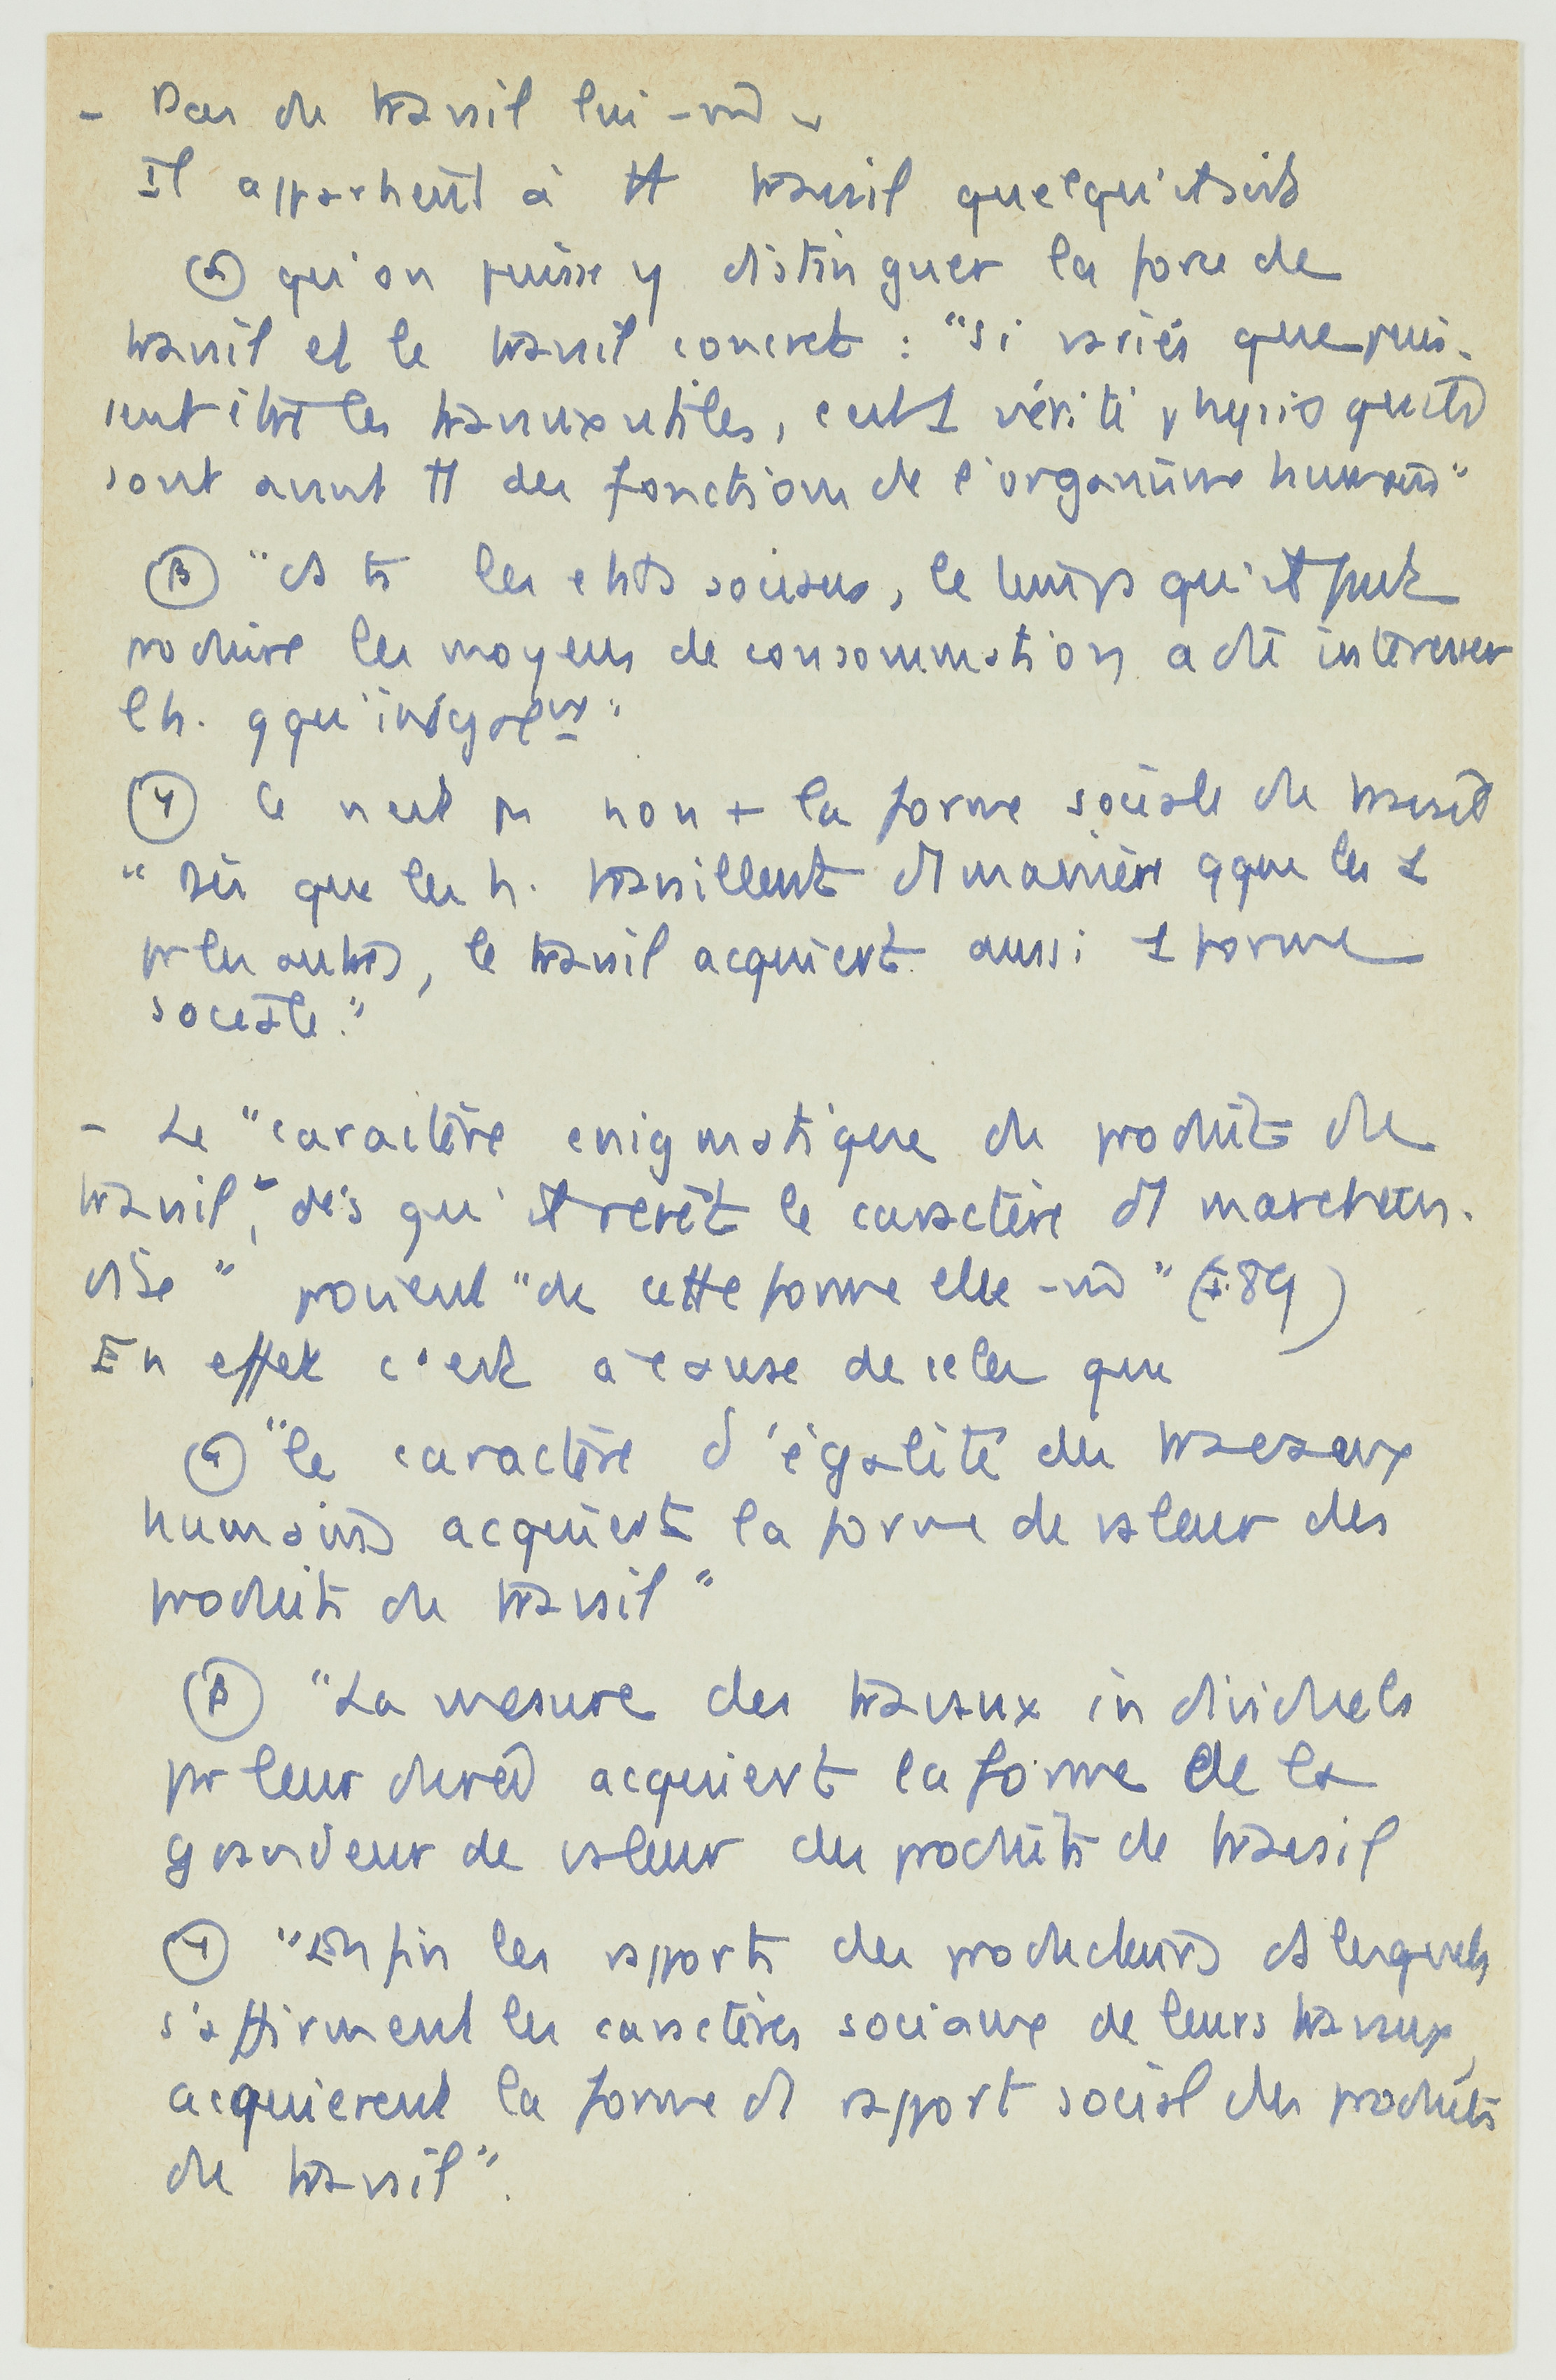 - Pas du travail lui-m̂
Il appartient à tt travail quel qu'il soit
(α) qu'on puisse y distinguer la force de
travail et le travail concret : "si variés que puis-
sent être les travaux utiles, c'est 1 vérité physio qu'ils
sont avant tt des fonctions de l'organisme humain"
(β) "ds ts les états sociaux, le temps qu'il faut
produire les moyens de consommation a dû intéresser
l'h. qque inégalt"
(γ) Ce n'est pas non + la forme sociale du travail
"Dès que les h. travaillent d'1 manière qque les 1
pr les autres, le travail acquiert aussi 1 forme
sociale."
- Le "caractère énigmatique du produit du
travail, dès qu'il revêt le caractère d'1 marchan-
dise" provient "de cette forme elle-m̂" (I. 89)
En effet c'est à cause de cela que
(α) "le caractère d'égalité des travaux
humains acquiert la forme de valeur des
produits du travail"
(β) "La mesure des travaux individuels
pr leur durée acquiert la forme de la
grandeur de valeur des produits de travail
(γ) "Enfin les rapports des producteurs ds lesquels
s'affirment les caractères sociaux de leurs travaux,
acquièrent la forme d'1 rapport social des produits
du travail".